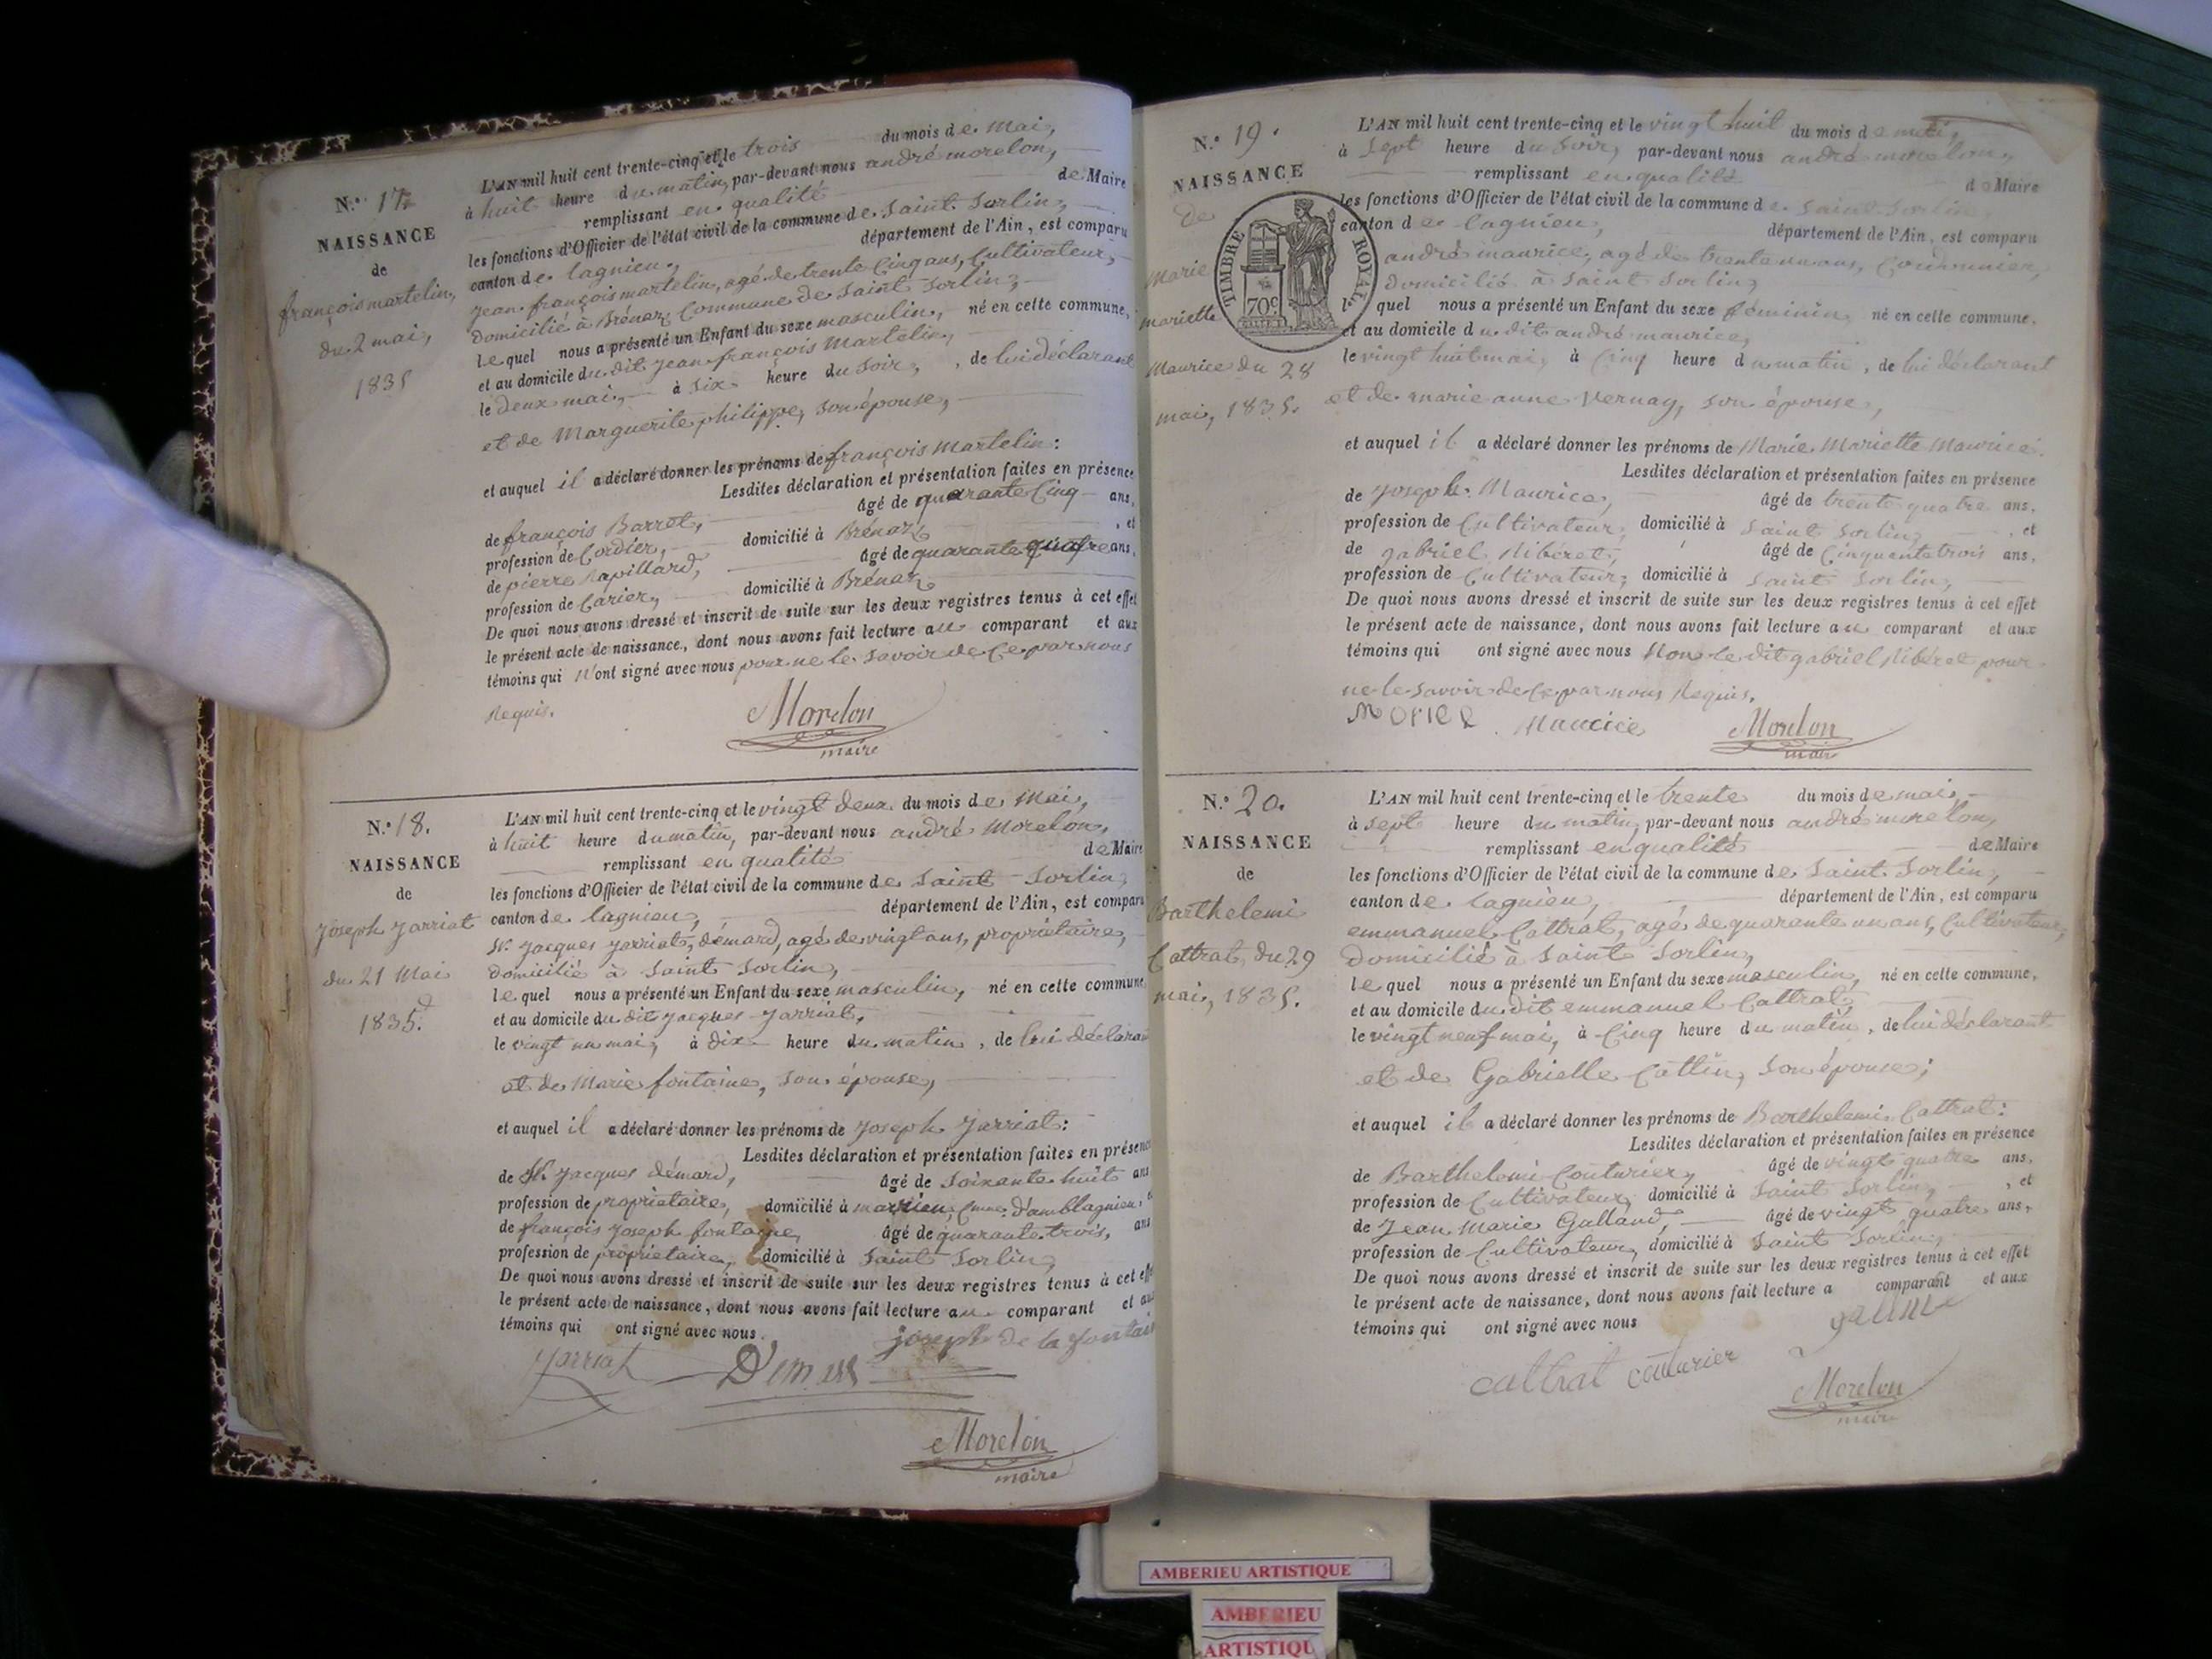 N.° 17
NAISSANCE
de
françois martelin,
du 2 mai,
1835
L'AN mil huit cent trente-cinq et le trois du mois de Mai,
à huit heure du matin, par-devant nous andré morelon,
remplissant en qualité de Maire
les fonctions d'Officier de l'état civil de la commune de Saint Sorlin,
canton de lagnieu, département de l'Ain, est comparu
jean françois martelin, agé de trente Cinq ans, Cultivateur,
domicilié à Brénaz Commune de Saint Sorlin,
lequel nous a présenté un Enfant du sexe masculin, né en cette commune,
et au domicile du dit jean françois Martelin,
le deux mai, à Six heure du Soir, de lui déclarant
et de Marguerite philippe, son épouse,
et auquel il a déclaré donner les prénoms de françois Martelin:
Lesdites déclaration et présentation faites en présence
de françois Barret, âgé de quarante Cinq ans,
profession de Cordier, domicilié à Brénaz, et
de pierre Rapillard, âgé de quarante quatre ans,
profession de Carier, domicilié à Brénaz
De quoi nous avons dressé et inscrit de suite sur les deux registres tenus à cet effet
le présent acte de naissance, dont nous avons fait lecture au comparant et aux
témoins qui N'ont signé avec nous pour ne le Savoir de Ce par nous
Requis.
Morelon
maire
N.° 18.
NAISSANCE
de
Joseph Jarriat
du 21 Mai
1835.
L'AN mil huit cent trente-cinq et le vingt deux du mois de Mai,
à huit heure du matin, par-devant nous andré Morelon,
remplissant en qualité de Maire
les fonctions d'Officier de l'état civil de la commune de Saint Sorlin,
canton de lagnieu, département de l'Ain, est comparu
Sr. Jacques Jarriat, démard, agé de vingt ans, propriétaire,
domicilié à Saint Sorlin,
lequel nous a présenté un Enfant du sexe masculin, né en cette commune
et au domicile du dit Jacques Jarriat,
le vingt un mai, à dix heure du matin, de lui déclarant
et de Marie fontaine, son épouse,
et auquel il a déclaré donner les prénoms de Joseph Jarriat:
Lesdites déclaration et présentation faites en présence
de Sr. Jacques démard, âgé de Soixante huit ans
profession de propriétaire, domicilié à marrieu, Cmne. d'amblagnieu,
de françois Joseph fontaine, âgé de quarante trois, ans
profession de propriétaire, domicilié à Saint Sorlin,
De quoi nous avons dressé et inscrit de suite sur les deux registres tenus à cet eff
le présent acte de naissance, dont nous avons fait lecture au comparant et au
témoins qui ont signé avec nous.
joseph de la fontai
Jarriat
Morelon
maire
N.° 19.
NAISSANCE
de
Marie
mariette
Maurice du 28
mai, 1835.
TIMBRE ROYAL
70c
L'AN mil huit cent trente-cinq et le vingt huit du mois de mai,
à Sept heure du Soir, par-devant nous andré morelon,
remplissant en qualité de Maire
les fonctions d'Officier de l'état civil de la commune de Saint Sorlin,
canton de lagnieu, département de l'Ain, est comparu
andré maurice, agé de trente un ans, Cordonnier,
domicilié à Saint Sorlin,
lequel nous a présenté un Enfant du sexe féminin, né en cette commune,
et au domicile du dit andré maurice,
le vingt huit mai, à Cinq heure du matin, de lui déclarant
et de marie anne Vernay, son épouse,
et auquel il a déclaré donner les prénoms de Marie Mariette Maurice.
Lesdites déclaration et présentation faites en présence
de Joseph Maurice, âgé de trente quatre ans,
profession de Cultivateur, domicilié à Saint Sorlin, et
de gabriel Ribéret, âgé de Cinquante trois ans,
profession de Cultivateur, domicilié à Saint Sorlin,
De quoi nous avons dressé et inscrit de suite sur les deux registres tenus à cet effet
le présent acte de naissance, dont nous avons fait lecture au comparant et aux
témoins qui ont signé avec nous Non le dit gabriel Ribéret pour
ne le Savoir de Ce par nous Requis.
Maurice Morelon
maire
N.° 20.
NAISSANCE
de
Barthelemi
Cattrat, du 29
mai, 1835.
L'AN mil huit cent trente-cinq et le trente du mois de mai,
à sept heure du matin, par-devant nous andré morelon,
remplissant en qualité de Maire
les fonctions d'Officier de l'état civil de la commune de Saint Sorlin,
canton de lagnieu, département de l'Ain, est comparu
emmanuel Cattrat, agé de quarante un ans, Cultivateur,
domicilié à Saint Sorlin,
lequel nous a présenté un Enfant du sexe masculin, né en cette commune,
et au domicile du dit emmanuel Cattrat,
le vingt neuf mai, à Cinq heure du matin, de lui déclarant
et de Gabrielle Cottin, son épouse;
et auquel il a déclaré donner les prénoms de Barthelemi Cattrat:
Lesdites déclaration et présentation faites en présence
de Barthelemi Couturier, âgé de vingt quatre ans,
profession de Cultivateur, domicilié à Saint Sorlin, et
de Jean Marie Galland, âgé de vingt quatre ans,
profession de Cultivateur, domicilié à Saint Sorlin,
De quoi nous avons dressé et inscrit de suite sur les deux registres tenus à cet effet
le présent acte de naissance, dont nous avons fait lecture a comparant et aux
témoins qui ont signé avec nous
cattrat couturier
Morelon
maire
AMBERIEU ARTISTIQUE
AMBERIEU
ARTISTIQU